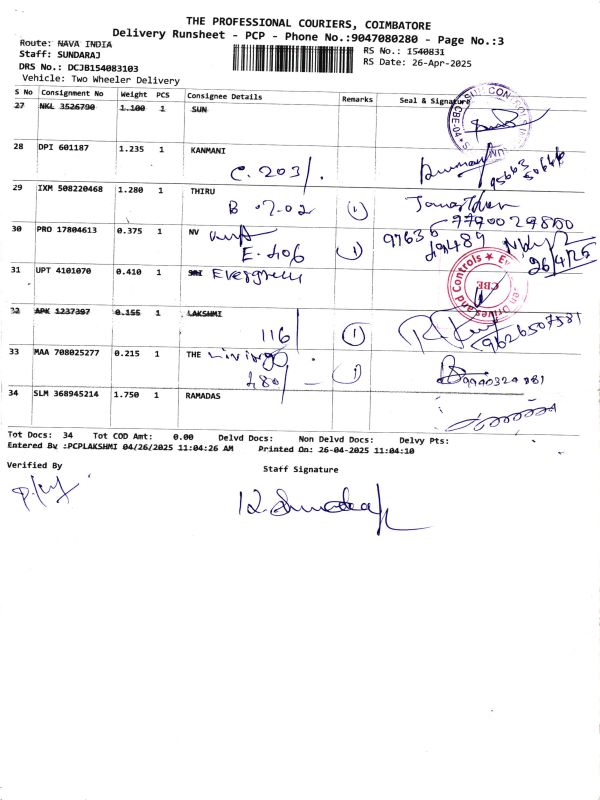 THE PROFESSIONAL COURIERS, COIMBATORE
Delivery Runsheet - PCP - Phone No.:9047080280 - Page No.:3
Route: NAVA INDIA
Staff: SUNDARAJ
RS No.: 1540831
DRS No.: DCJB154083103
RS Date: 26-Apr-2025
Vehicle: Two Wheeler Delivery
S No Consignment No Weight PCS Consignee Details Remarks Seal & Signature
27 NKL 3526790 1.100 1 SUN
28 DPI 601187 1.235 1 KANMANI
C. 203/.
29 IXM 508220468 1.280 1 THIRU
B 7.02 (1)
9790029800
30 PRO 17804613 0.375 1 NV
E. 406 (1)
97636
49489
26/4/25
31 UPT 4101070 0.410 1 Evergreen
Drives and Controls
CBE
32 APK 1237397 0.155 1 LAKSHMI
116/ (1)
9626507581
33 MAA 708025277 0.215 1 THE Living
480/ - (1)
34 SLM 368945214 1.750 1 RAMADAS
Tot Docs: 34 Tot COD Amt: 0.00 Delvd Docs: Non Delvd Docs: Delvy Pts:
Entered By :PCPLAKSHMI 04/26/2025 11:04:26 AM Printed On: 26-04-2025 11:04:10
Verified By
Staff Signature